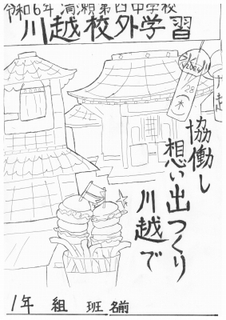 令和6年 清瀬第四中学校
川越校外学習
協働し
想い出つくり
川越で
1年 組 班 名前